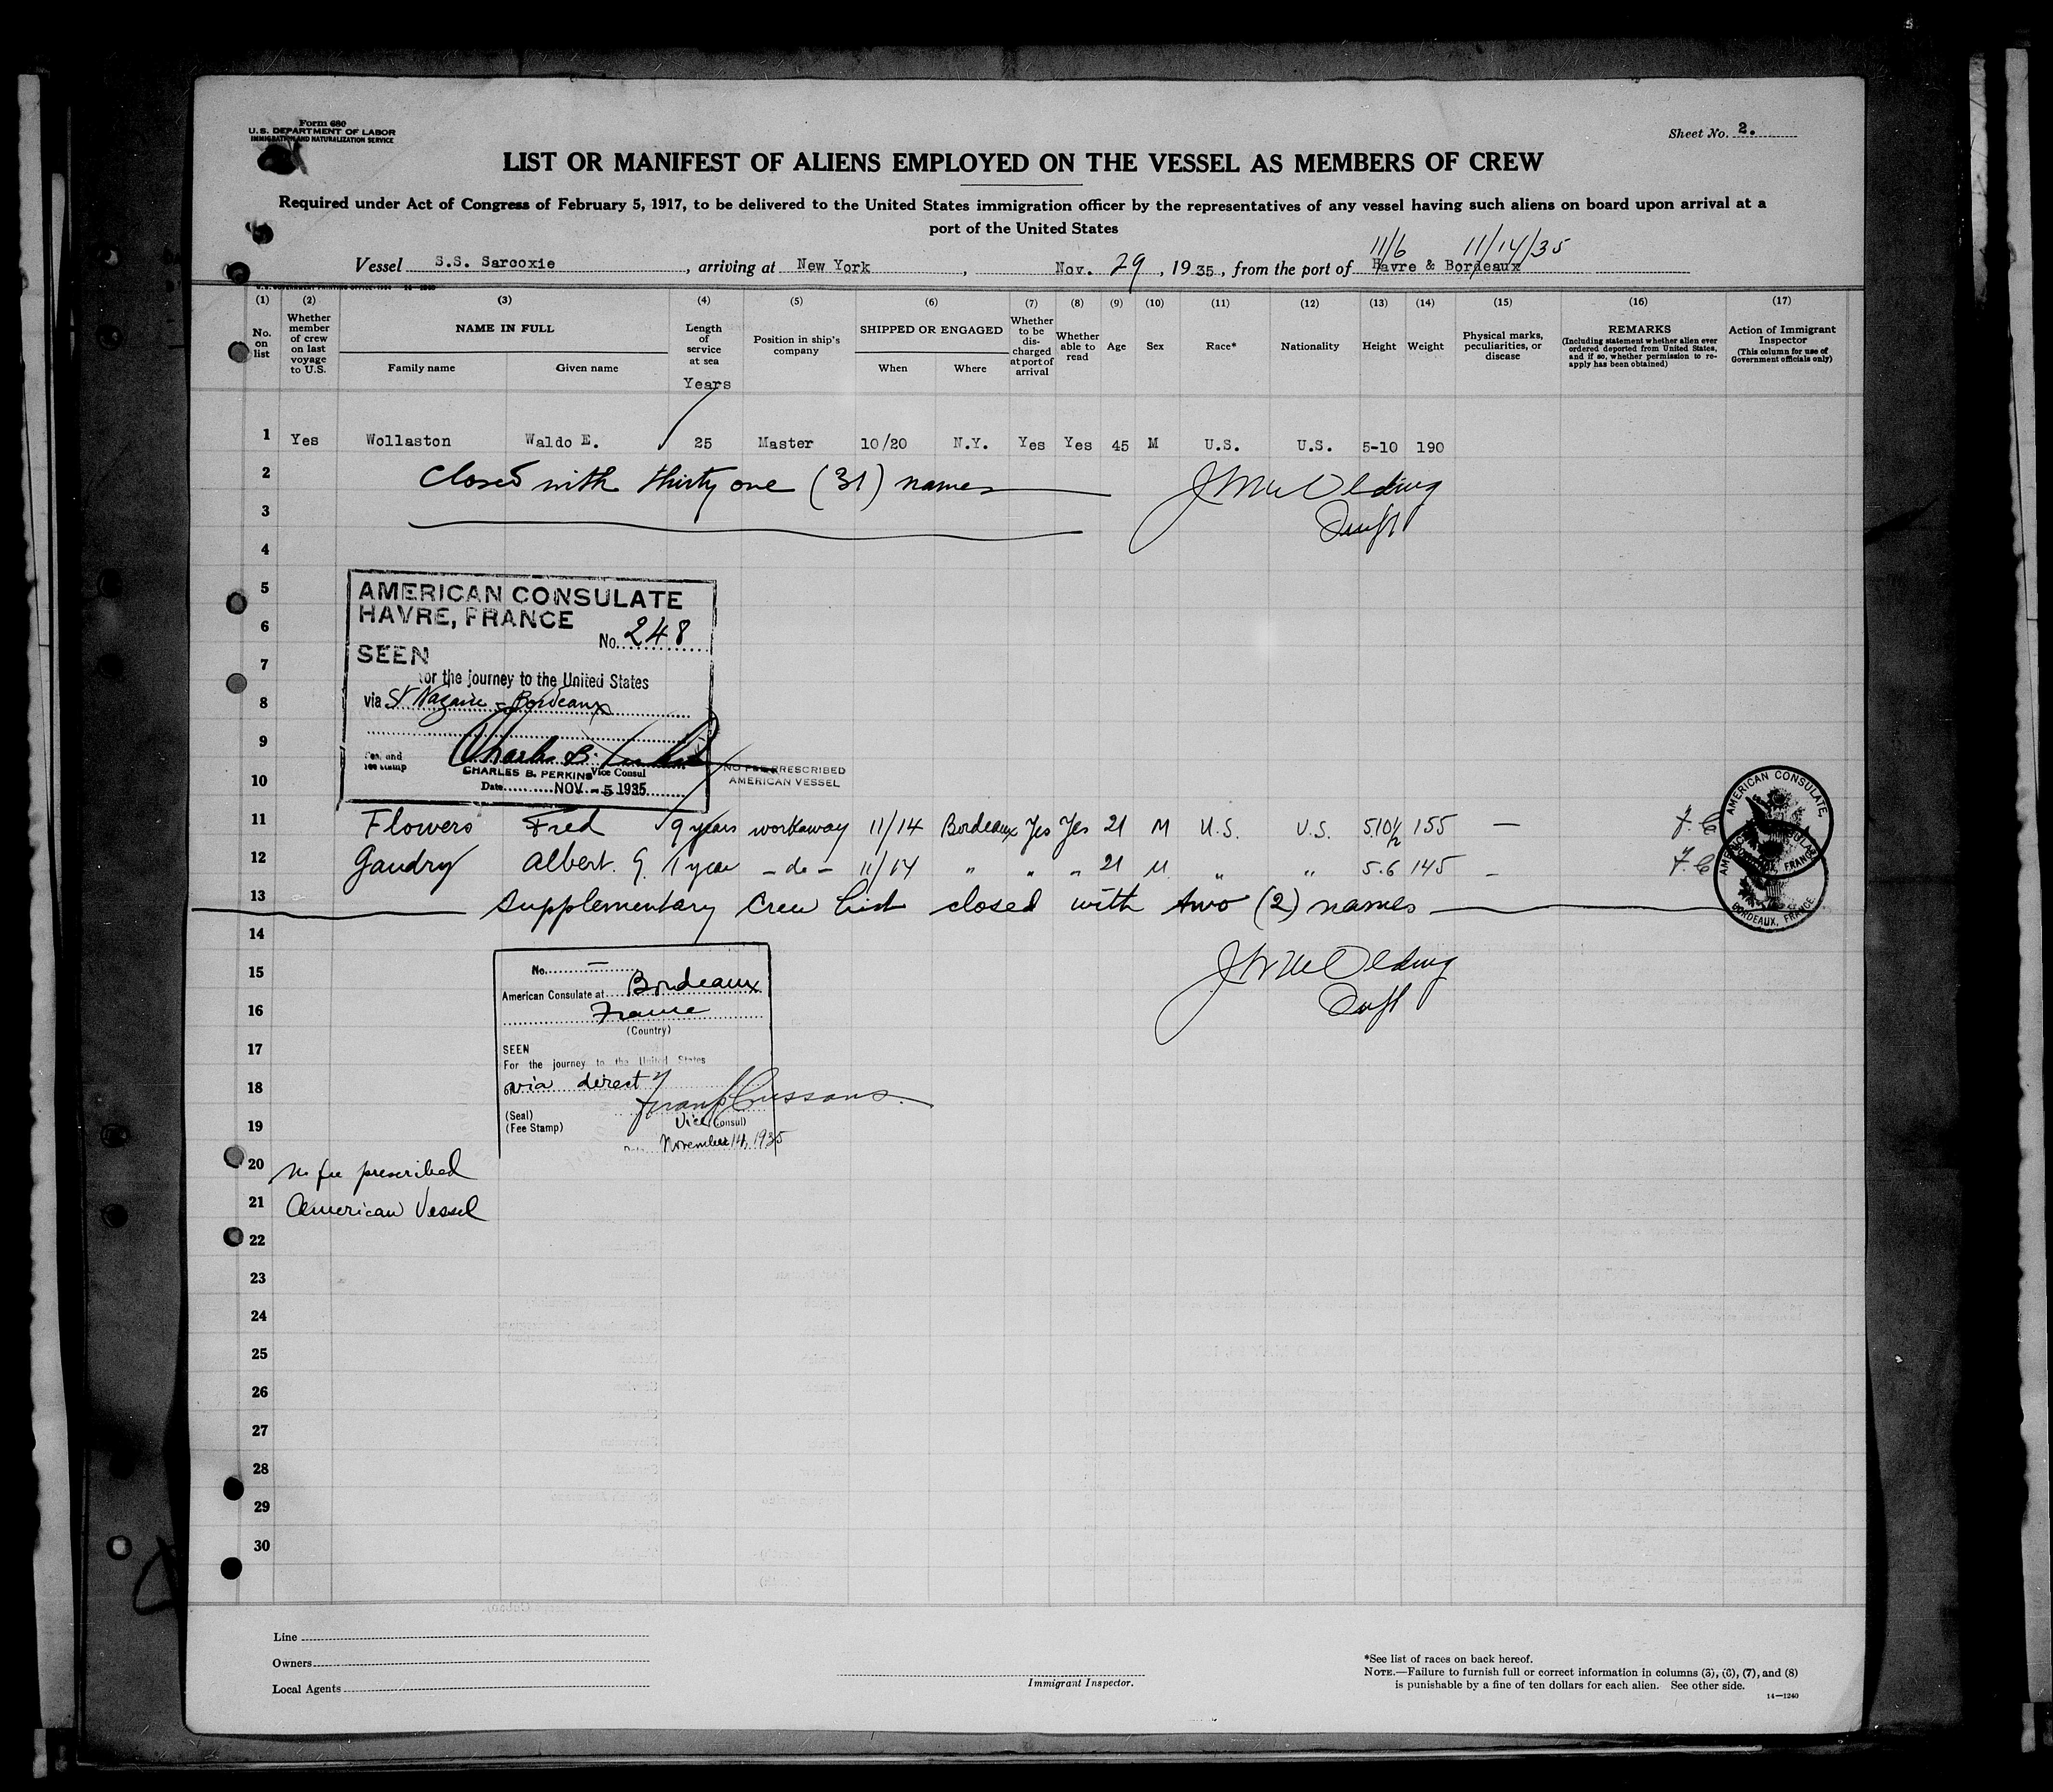 Form 680
U.S. DEPARTMENT OF LABOR
IMMIGRATION AND NATURALIZATION SERVICE
Sheet No. 2.
LIST OR MANIFEST OF ALIENS EMPLOYED ON THE VESSEL AS MEMBERS OF CREW
Required under Act of Congress of February 5, 1917, to be delivered to the United States immigration officer by the representatives of any vessel having such aliens on board upon arrival at a
port of the United States
11/6 11/14/35
Vessel S.S. Sarcoxie, arriving at New York, Nov. 29, 1935, from the port of Havre & Bordeaux
(1) (2) (3) (4) (5) (6) (7) (8) (9) (10) (11) (12) (13) (14) (15) (16) (17)
No. on list
Whether member of crew on last voyage to U.S.
NAME IN FULL
Family name Given name
Length of service at sea
Years
Position in ship's company
SHIPPED OR ENGAGED
When Where
Whether to be discharged at port of arrival
Whether able to read
Age
Sex
Race*
Nationality
Height
Weight
Physical marks, peculiarities, or disease
REMARKS
(Including statement whether alien ever ordered deported from United States, and if so, whether permission to re-apply has been obtained)
Action of Immigrant Inspector
(This column for use of Government officials only)
1 Yes Wollaston Waldo E. 25 Master 10/20 N.Y. Yes Yes 45 M U.S. U.S. 5-10 190
2 Closed with thirty one (31) names
3
4
5 AMERICAN CONSULATE
HAVRE, FRANCE
6 No. 248
7 SEEN
for the journey to the United States
8 via St Nazaire - Bordeaux
9
Fee and fee stamp
CHARLES B. PERKINS Vice Consul
10 NO FEE PRESCRIBED
AMERICAN VESSEL
Date NOV. -5 1935
11 Flowers Fred 9 years workaway 11/14 Bordeaux Yes Yes 21 M U.S. U.S. 510½ 155 — F.C
12 Gaudry Albert. G. 1 year - do - 11/14 " " " 21 M " " 5.6 145 — F.C
AMERICAN CONSULATE, BORDEAUX, FRANCE
13 Supplementary Crew list closed with two (2) names
14
15 No. —
American Consulate at Bordeaux
16 France
(Country)
17 SEEN
For the journey to the United States
18 via direct
(Seal)
19 (Fee Stamp)
Vice (Consul)
Date November 14, 1935
20 No fee prescribed
21 American Vessel
22
23
24
25
26
27
28
29
30
Line
Owners
Local Agents
Immigrant Inspector.
*See list of races on back hereof.
NOTE.—Failure to furnish full or correct information in columns (3), (6), (7), and (8)
is punishable by a fine of ten dollars for each alien. See other side.
14—1240